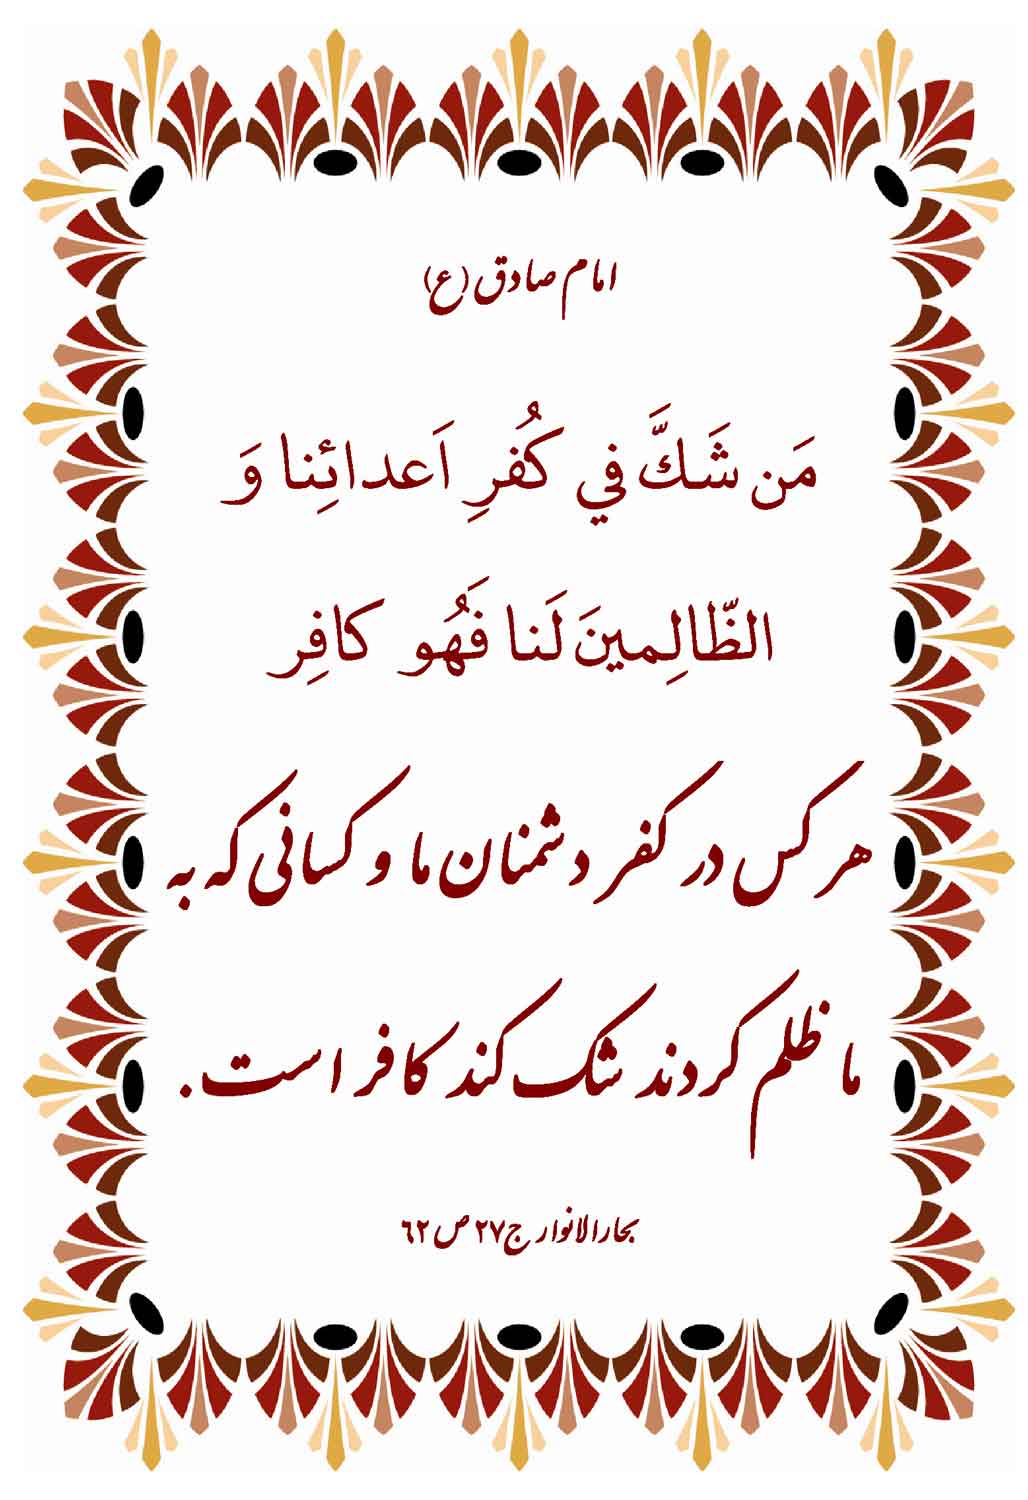 امام صادق (ع)
مَن شَكَّ في كُفرِ اَعدائِنا وَ
الظّالِمينَ لَنا فَهُو كافِر
هر کس در کفر دشمنان ما و کسانی که به
ما ظلم کردند شک کند کافر است.
بحارالانوار ج۲۷ ص۶۲